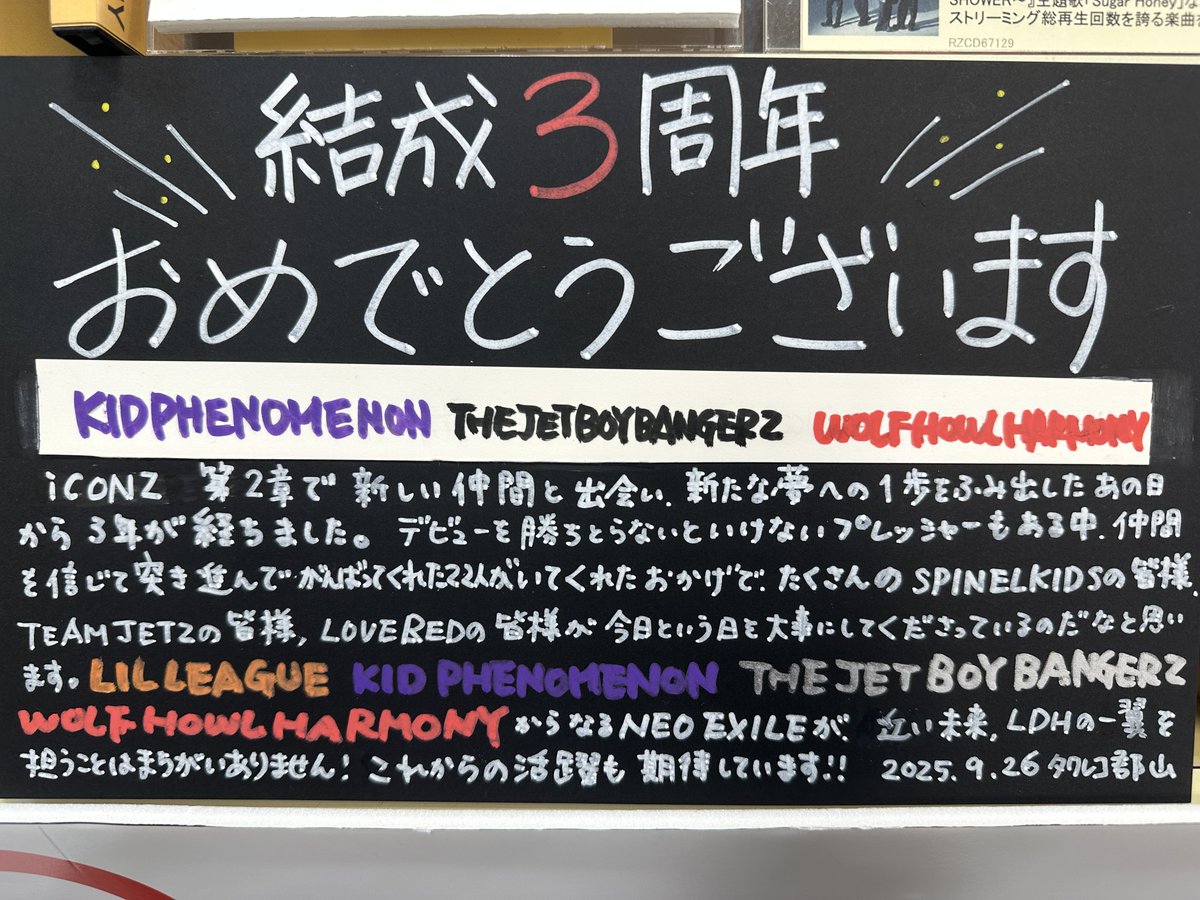 SHOWER～』主題歌「Sugar Honey」な
ストリーミング総再生回数を誇る楽曲を
RZCD67129
結成3周年
おめでとうございます
KID PHENOMENON THE JET BOY BANGERZ WOLF HOWL HARMONY
iCONZ 第2章で新しい仲間と出会い、新たな夢への1歩をふみ出したあの日
から3年が経ちました。デビューを勝ちとらないといけないプレッシャーもある中、仲間
を信じて突き進んでがんばってくれた22人がいてくれたおかげで、たくさんのSPINELKIDSの皆様、
TEAM JETZの皆様、LOVEREDの皆様が今日という日を大事にしてくださっているのだなと思い
ます。LIL LEAGUE KID PHENOMENON THE JET BOY BANGERZ
WOLF HOWL HARMONYからなるNEO EXILEが、近い未来、LDHの一翼を
担うことはまちがいありません！これからの活躍も期待しています!! 2025.9.26 タワレコ郡山